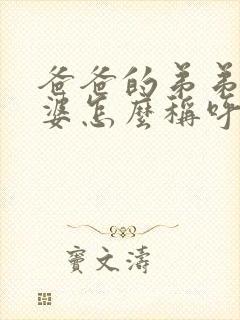 爸爸的弟弟
婆怎麼稱呼
竇文濤